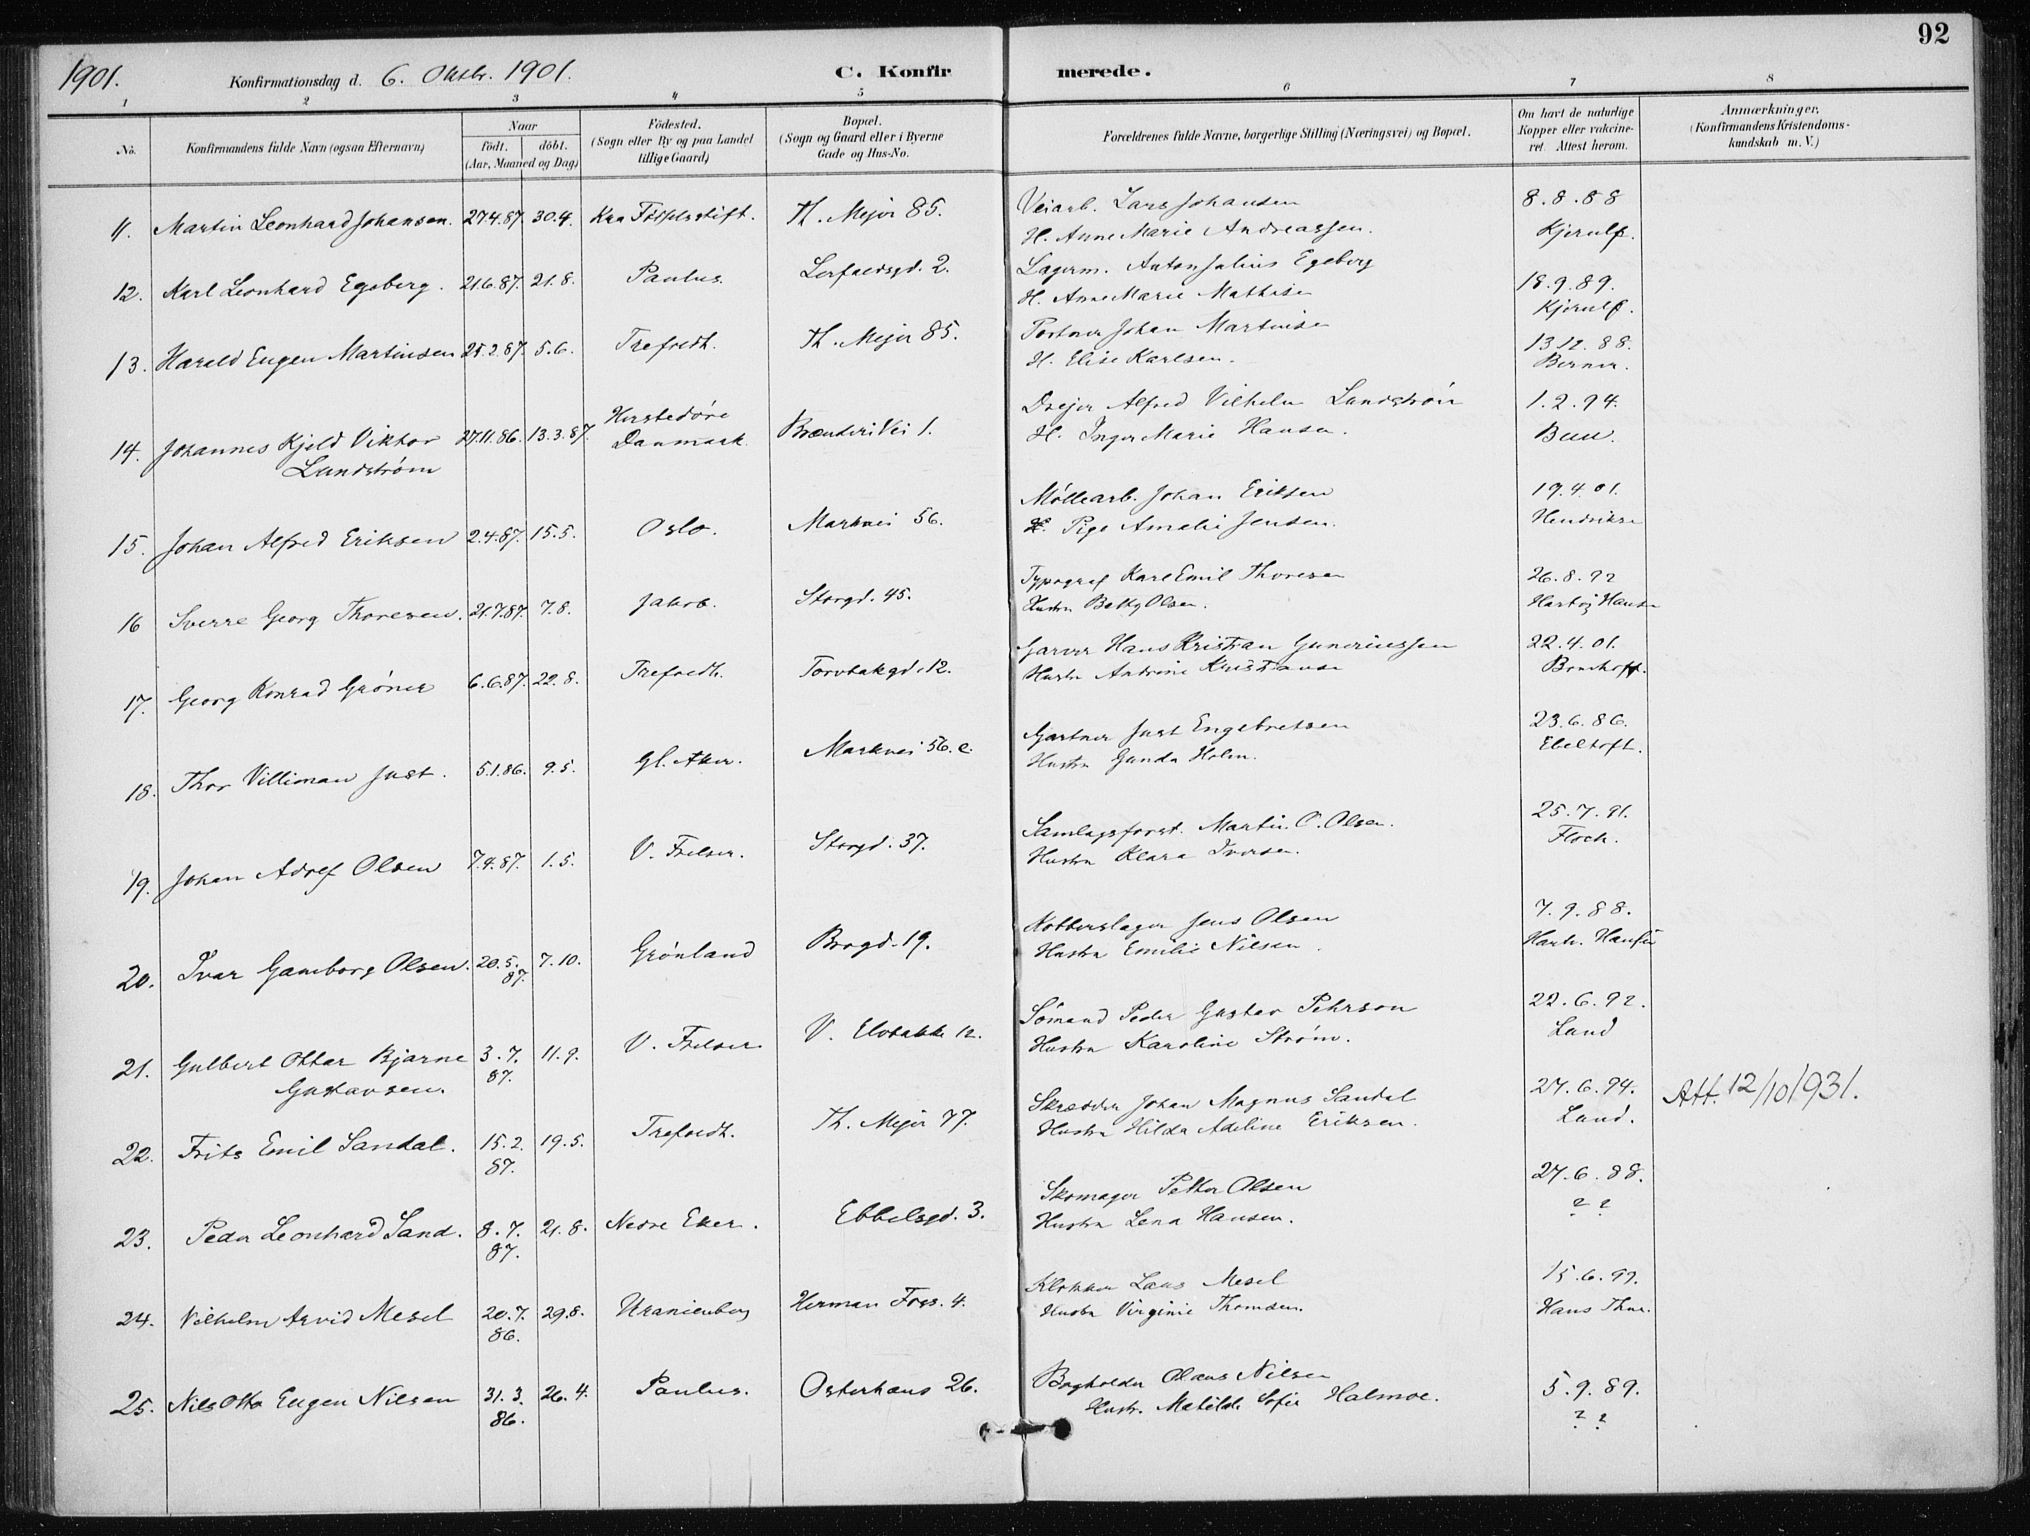 92
1901. Konfirmationsdag d. 6. Oktbr. 1901. C. Konfirmerede.
1 2 3 4 5 6 7 8
No. Konfirmandens fulde Navn (ogsaa Efternavn) Naar født. døbt. (Aar, Maaned og Dag) Fødested. (Sogn eller By og paa Landet tillige Gaard) Bopæl. (Sogn og Gaard eller i Byerne Gade og Hus-No. Forældrenes fulde Navne, borgerlige Stilling (Næringsvei) og Bopæl. Om havt de naturlige Kopper eller vakcineret. Attest herom. Anmærkninger. (Konfirmandens Kristendomskundskab m. V.)
11. Martin Leonhard Johansen. 27.4.87. 30.4. Kra Fødselsstift. Th. Mejer 85. Veiarb. Lars Johansen 8.8.88
H. Anne Marie Andreassen. Kjerulf.
12. Karl Leonhard Egeberg. 21.6.87. 21.8. Paulus. Lerfaldsgd. 2. Lagerm. Anton Julius Egeberg 18.9.89.
H. Anne Marie Mathisen Kjerulf.
13. Harald Eugen Martinsen 25.2.87. 5.6. Trefoldh. Th. Mejer 85. Portner Johan Martinsen 13.12.88.
H. Elise Karlsen. Berner.
14. Johannes Kjeld Viktor 27.11.86. 13.3.87. Danmark. Brenneri Vei 1. Drejer Alfred Vilhelm Lundstrøm 1.2.94.
Lundstrøm H. Inger Marie Hansen.
15. Johan Alfred Eriksen 2.4.87. 15.5. Oslo. Markvei 56. Møllearb. Johan Eriksen 19.4.01.
Pige Amalie Jensen. Hendriksen
16 Sverre Georg Thoresen. 21.7.87. 7.8. Jakob. Storgd. 45. Typograf Karl Emil Thoresen 26.8.92
Hustru Betty Olsen. Hartvig Hansen
17. Georg Konrad Grøner 6.6.87. 22.8. Trefoldh. Torvbakgd. 12. Garver Hans Kristian Guneriussen 22.4.01.
Hustr. Antoni Kristiansen
18. Thor Villiman Just. 5.1.86. 9.5. Gl. Aker. Markvei 56.c. Gartner Just Engebretsen 23.6.86.
Hustru Gunda Holm. Ebeltoft.
19. Johan Adolf Olsen 7.4.87. 1.5. V. Frelser. Storgd. 37. Samlagsforst. Martin O. Olsen. 25.7.91.
Hustru Klara Iversen. Floch.
20. Ivar Gamborg Olsen. 20.5.87. 7.10. Grønland Brogd. 19. Kobberslager Jens Olsen 7.9.88.
Hustru Emilie Nilsen. Hartv. Hansen
21. Gulbert Ottar Bjarne 3.7.87. 11.9. V. Frelser V. Elvbakke 12. Sømand Peder Gustav Pehrson 22.6.92.
Gustavsen. Hustru Karoline Strøm. Land
22. Frits Emil Sandal. 15.2.87. 19.5. Trefoldh. Th. Mejer 77. Skrædder Johan Magnus Sandal 27.6.94. Att. 12/10 1931.
Hustru Hilda Adeline Eriksen. Land.
23. Peder Leonhard Sand. 8.7.87. 21.8. Nedre Eker. Ebbelsgd. 3. Skomager Petter Olsen 27.6.88.
Hustru Lena Hansen. ? ?
24. Vilhelm Arvid Mesel 20.7.86. 29.8. Uranienborg Herman Foss. 4. Klokker Laus Mesel 15.6.97.
Hustru Virginie Thomsen. Hans Thur.
25. Nils Otto Eugen Nilsen 31.3.86. 26.4. Paulus. Osterhaus 26. Bogholder Olaus Nilsen 5.9.89.
Hustr. Matilde Sofie Halmoe. ? ?